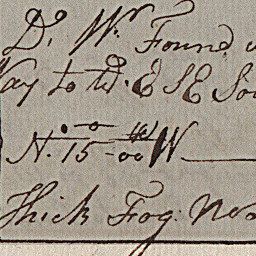 Do. Wr. Found
to wd. E S E So
N. 15°-00 W
Thick Fog. No